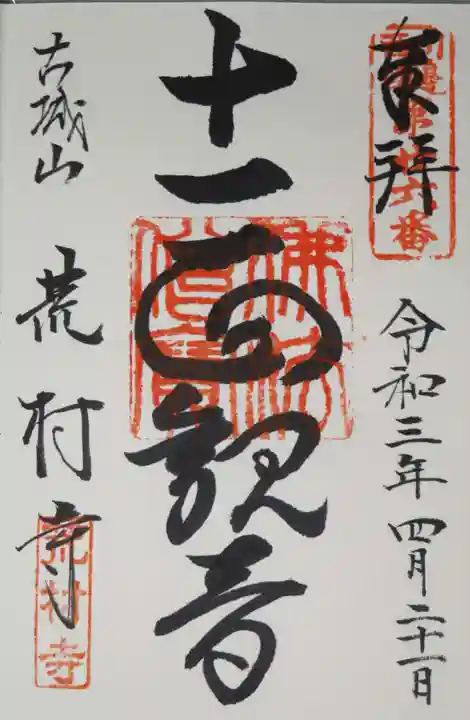 奉拝
令和三年四月二十一日
十一面観音
佛法僧寳
古城山
荒村寺
荒村寺